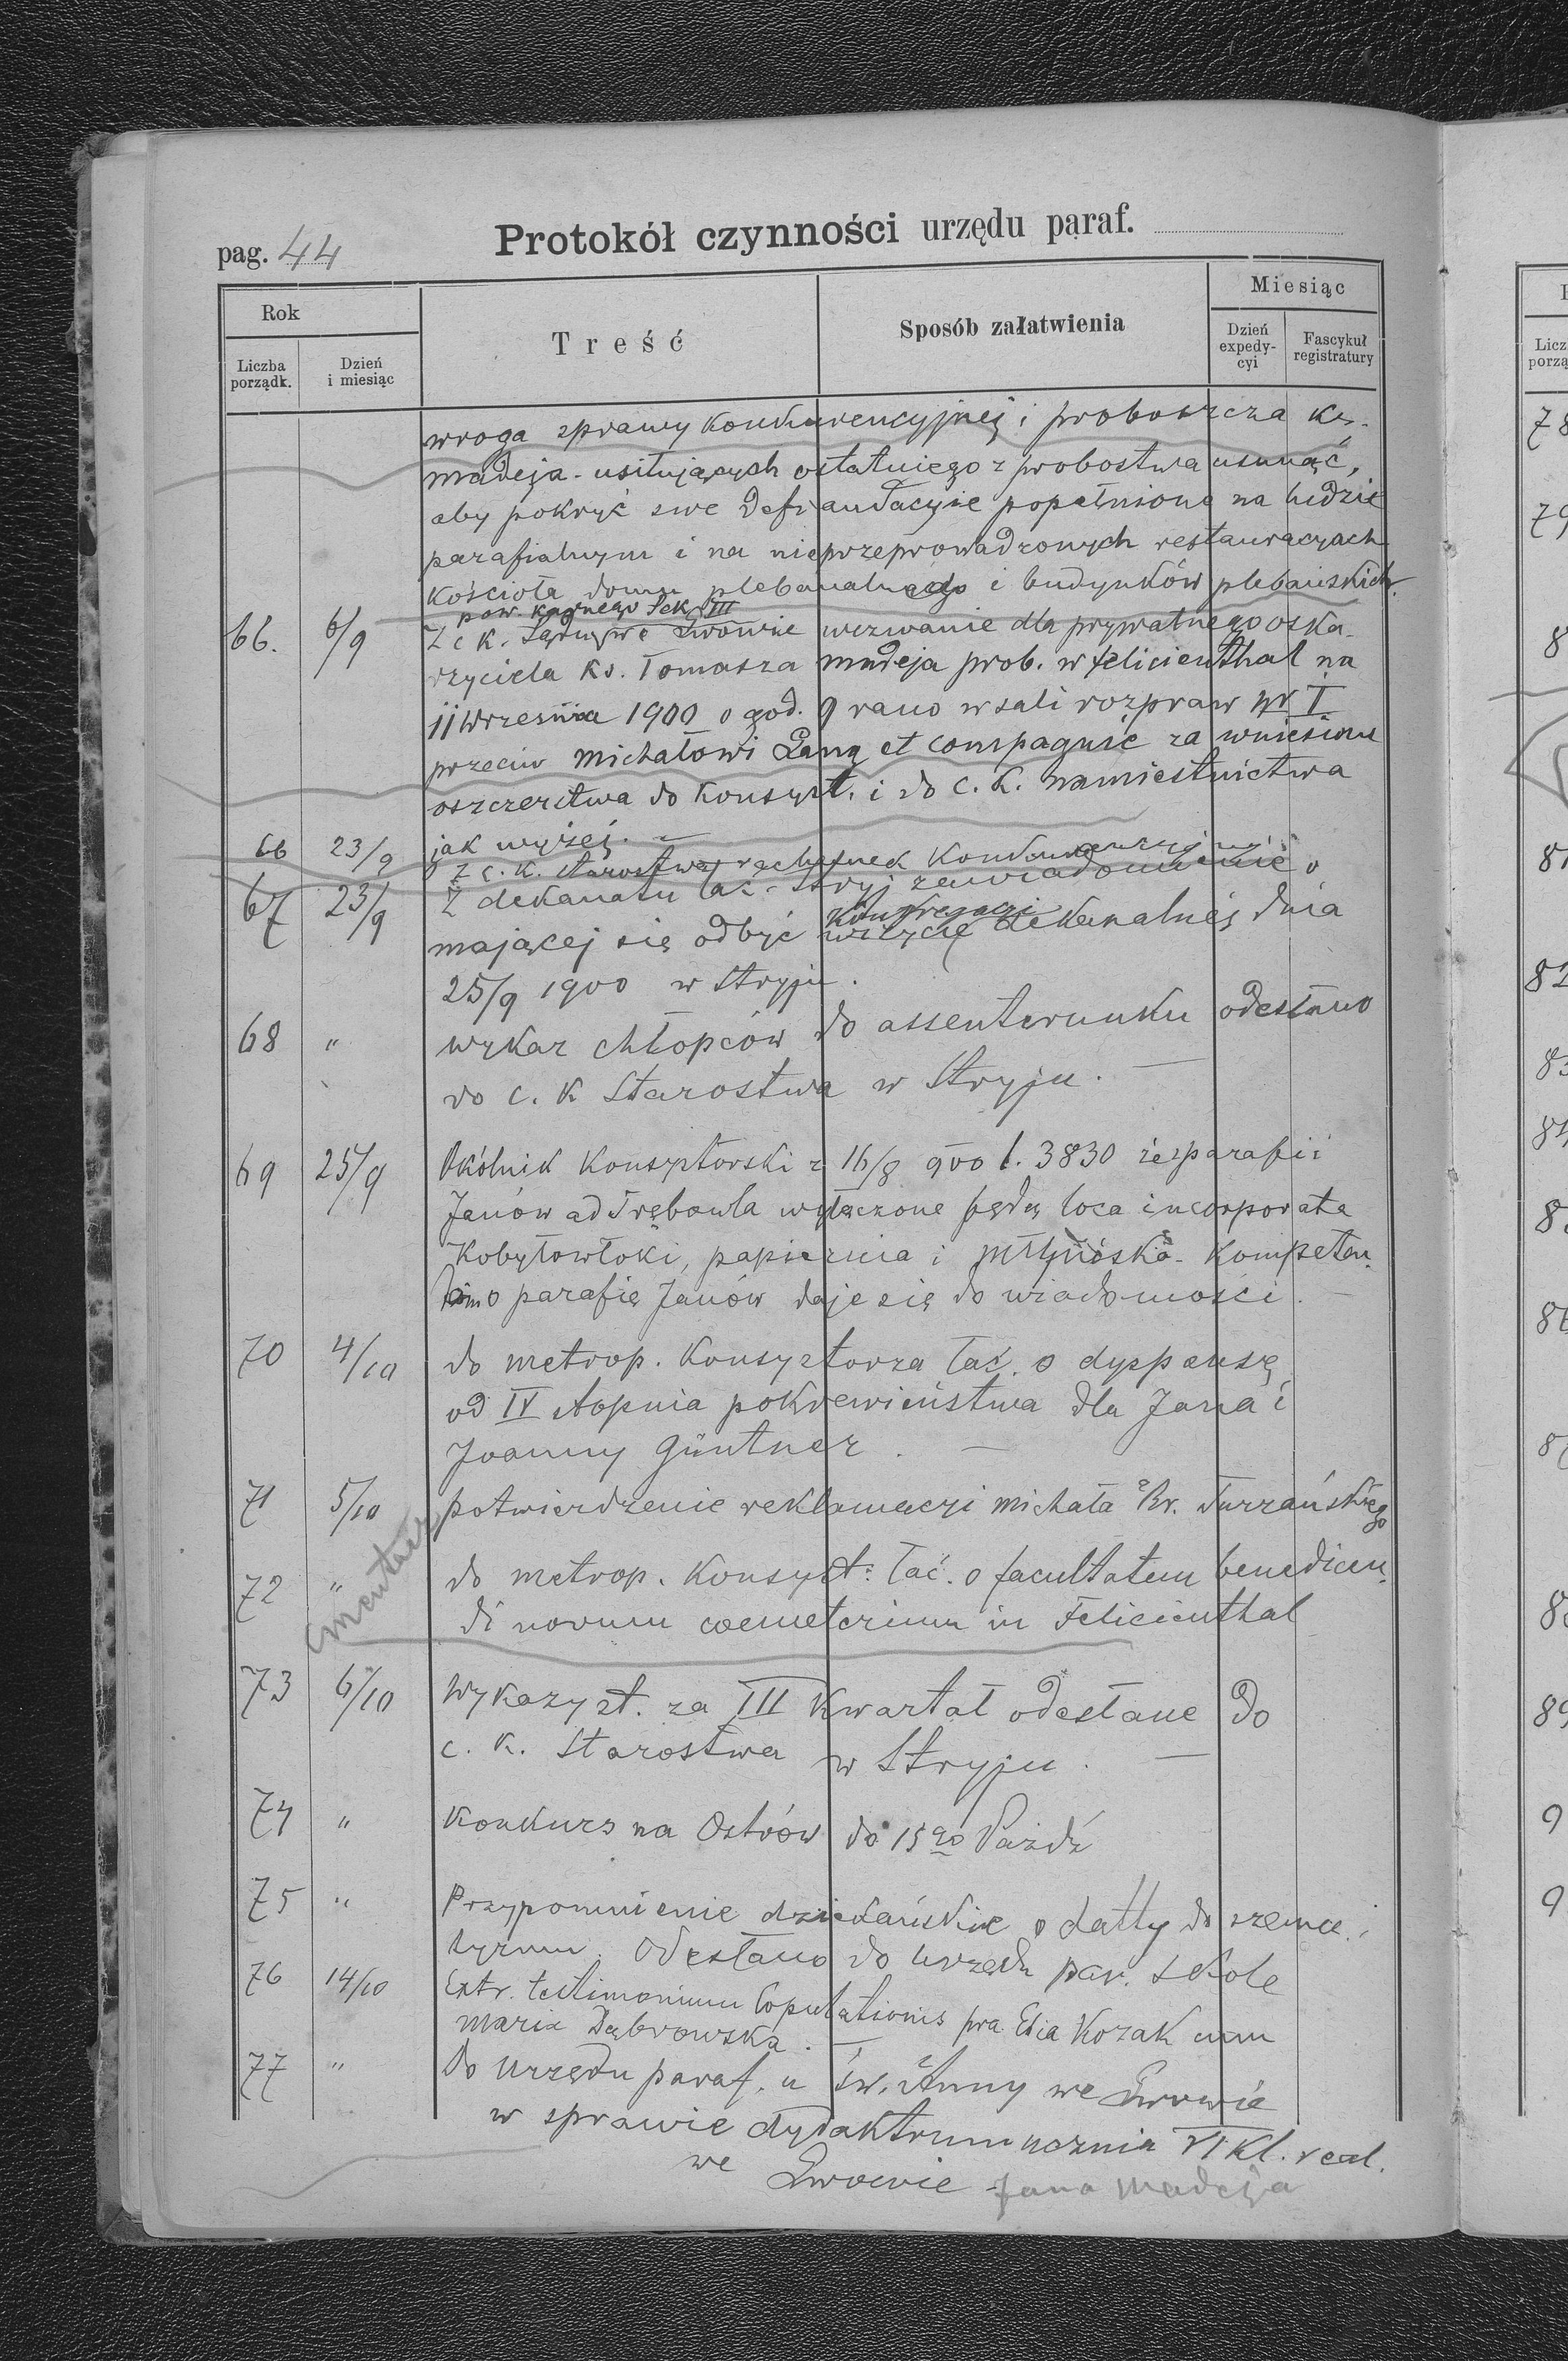 pag. 44
Protokół czynności urzędu paraf.
Rok
Treść
Sposób załatwienia
Miesiąc
Liczba porządk.
Dzień i miesiąc
Dzień expedy-cyi
Fascykuł registratury
wroga sprawy konkurencyjnej i proboszcza ks.
Madeja - usiłujących ostatniego z probostwa usunąć,
aby pokryć swe defraudacyje popełnione na ludzie
parafialnym i na nieprzeprowadzonych restauracyach
kościoła domu plebanalnego i budynków plebańskich.
pow. karnego Sek. III
66. 6/9 Z c k. Sądu we Lwowie wezwanie dla prywatnego oska-
rzyciela Ks. Tomasza Madeja prob. w Felicienthal na
11 Września 1900 o god. 9 rano w sali rozpraw nr I
przeciw Michałowi Lang et compagnie za wniesione
oszczerstwa do Konsyst. i do C. K. Namiestnictwa
jak wyżej. —
66 23/9 Z c. k. Starostwa rachunek
67 23/9 Z dekanatu łać. Stryj zawiadomienie o
Kongregacyi
mającej się odbyć wizycie dekanalnej dnia
25/9 1900 w Stryju.
68 " Wykaz chłopców do assenterunku odesłano
do c. k Starostwa w Stryju. —
69 25/9 Okólnik Konsystorski z 16/8 900 l. 3830 że z parafii
Janów ad Trębowla wyłączone będą loca incorporata
Kobyłowłoki, papiernia i Młyniska - Kompeten-
tom o parafię Janów daje się do wiadomości. —
70 4/10 do metrop. Konsystorza łać. o dyspensę
od IV stopnia pokrewieństwa dla Jana i
Joanny Güntner. —
71 5/10 potwierdzenie reklamacyi Michała Br. Turzańskiego
72 " do metrop. Konsyst: łać. o facultatem benedicen-
di novum coemeterium in Felicienthal
cmentarz
73 6/10 Wykazy st. za III Kwartał odesłane do
c. k. Starostwa w Stryju. —
74 " Konkurs na Ostrów do 15go Paźdź
75 " Przypomnienie dziekańskie o datty do szema-
tyzmu. Odesłano do Urzędu par. Skole
76 14/10 Extr. testimonium Copulationis pra Elia Kozak cum
Maria Dąbrowska. —
77 " Do Urzędu paraf. u św. Anny we Lwowie
w sprawie dydaktrum ucznia VI Kl. real.
we Lwowie Jana Madeja